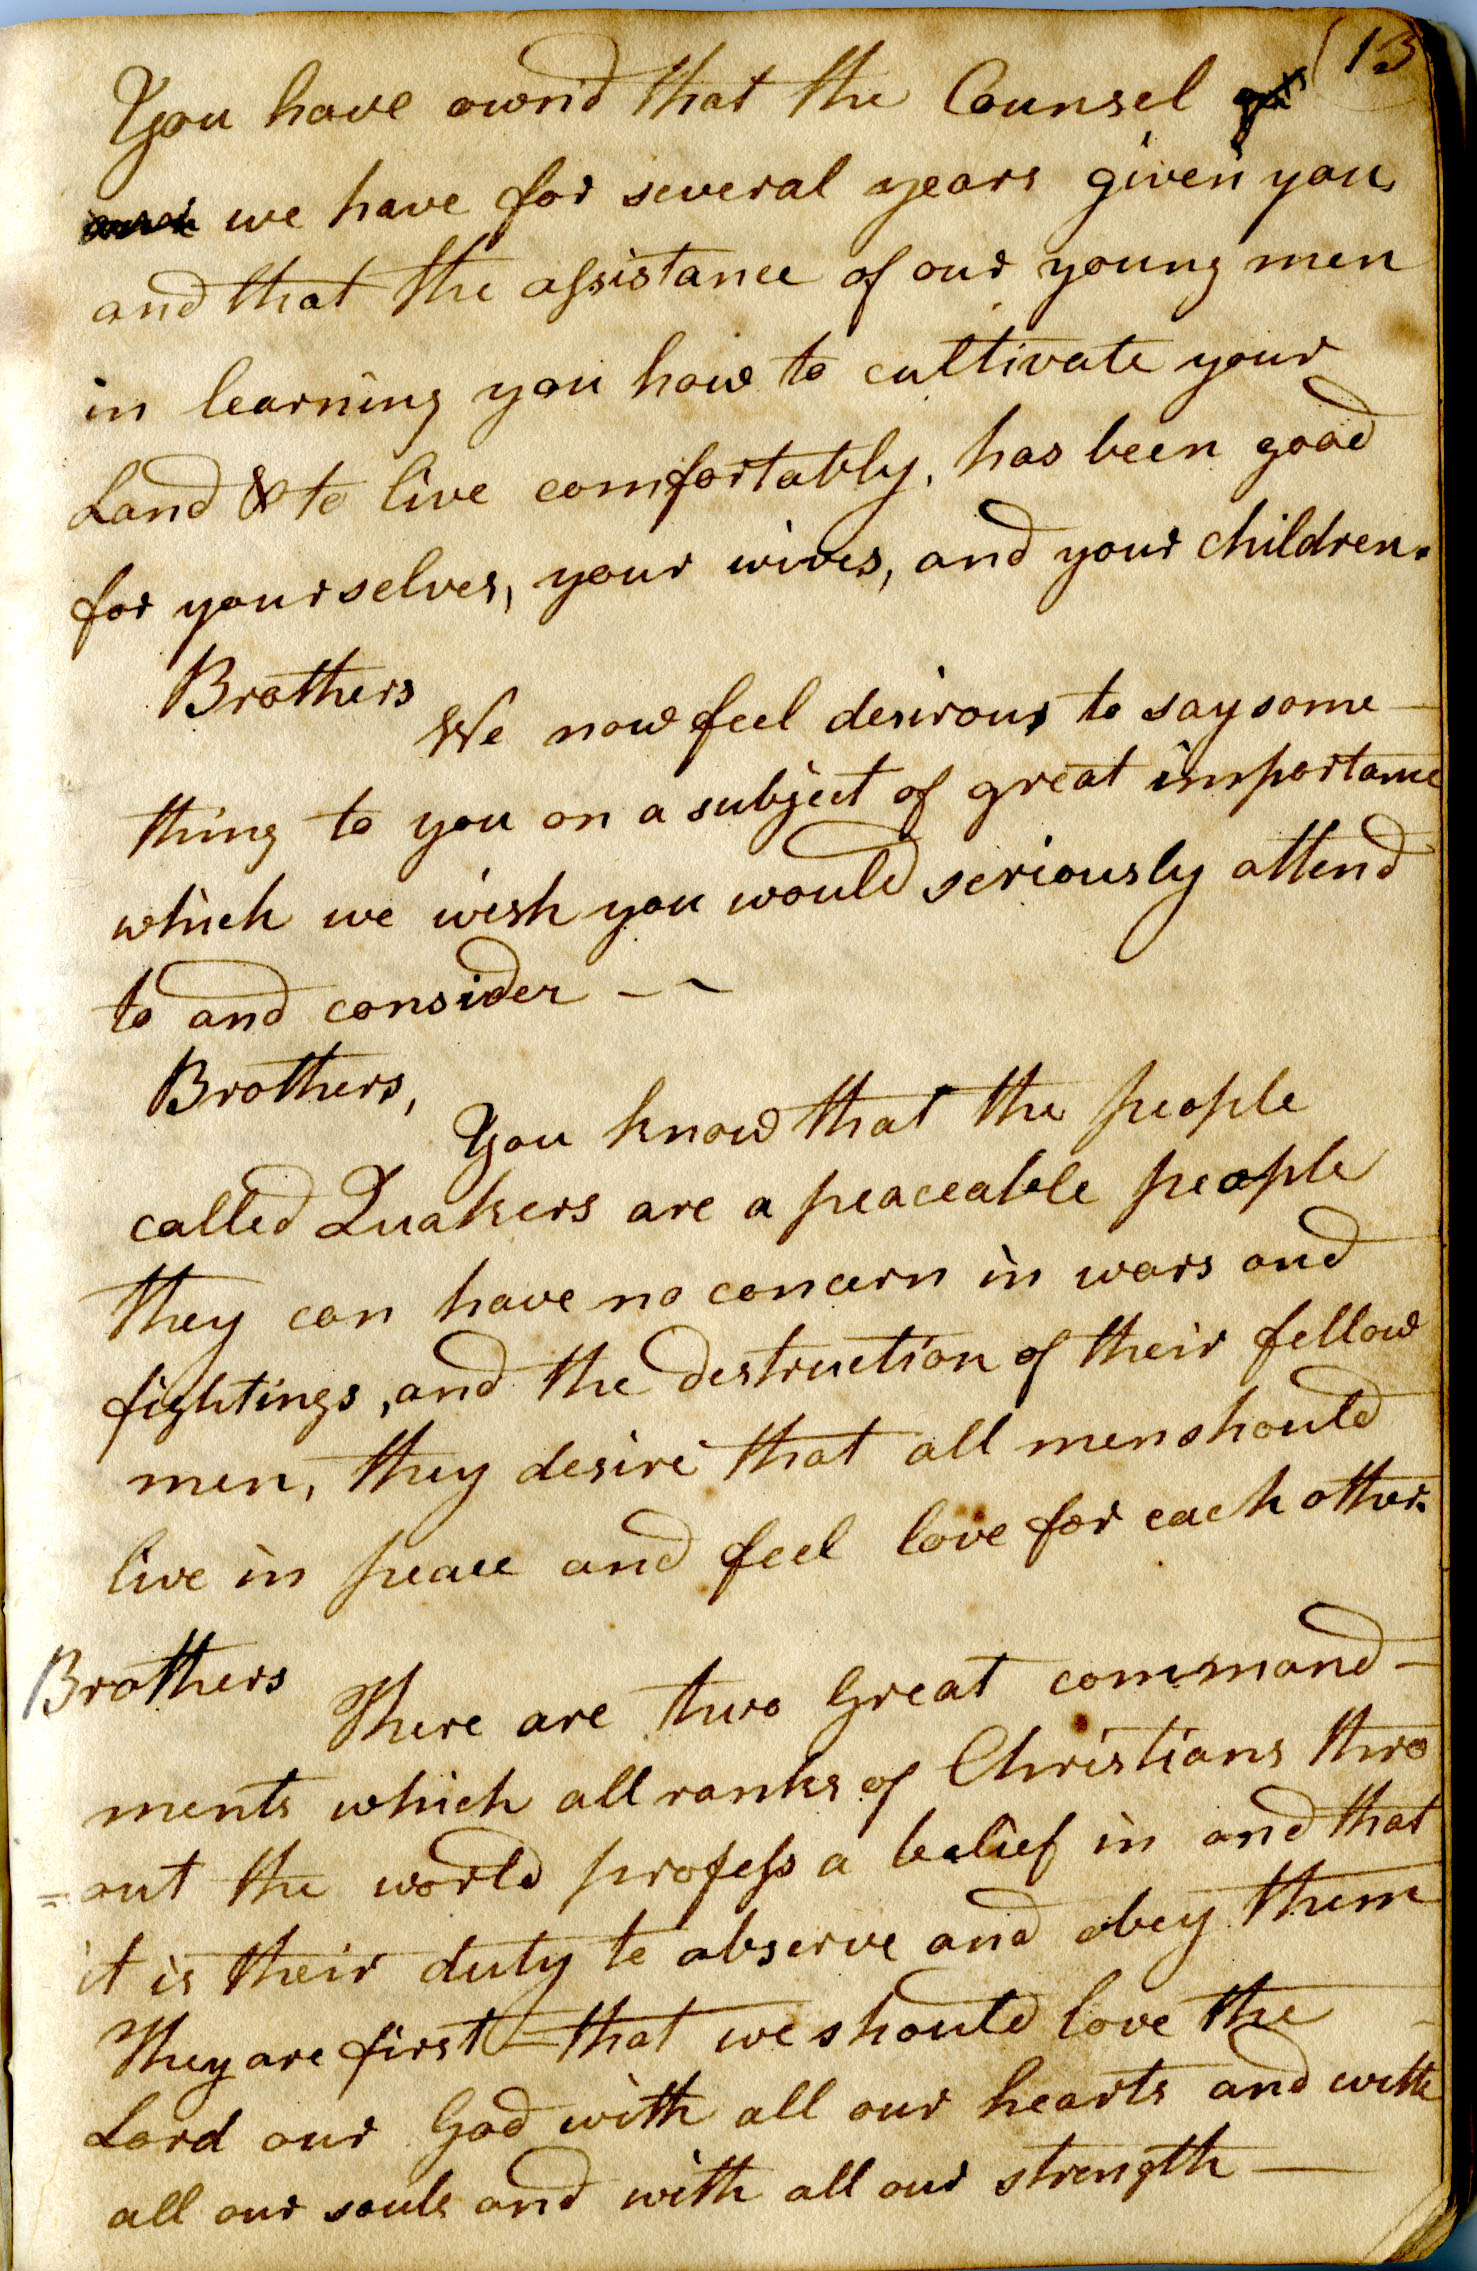 (13
You have own'd that the Counsel
we have for several years given you
and that the assistance of our young men
in learning you how to cultivate your
Land & to live comfortably, has been good
for yourselves, your wives, and your children.
Brothers
We now feel desirous to say some
thing to you on a subject of great importance
which we wish you would seriously attend
to and consider - -
Brothers,
You know that the people
called Quakers are a peaceable people
they can have no concern in wars and
fightings, and the destruction of their fellow
men, they desire that all men should
live in peace and feel love for each other.
Brothers
There are two Great command-
ments which all ranks of Christians thro
=out the world profess a belief in and that
it is their duty to observe and obey them
They are first - that we should love the
Lord our God with all our hearts and with
all our souls and with all our strength —